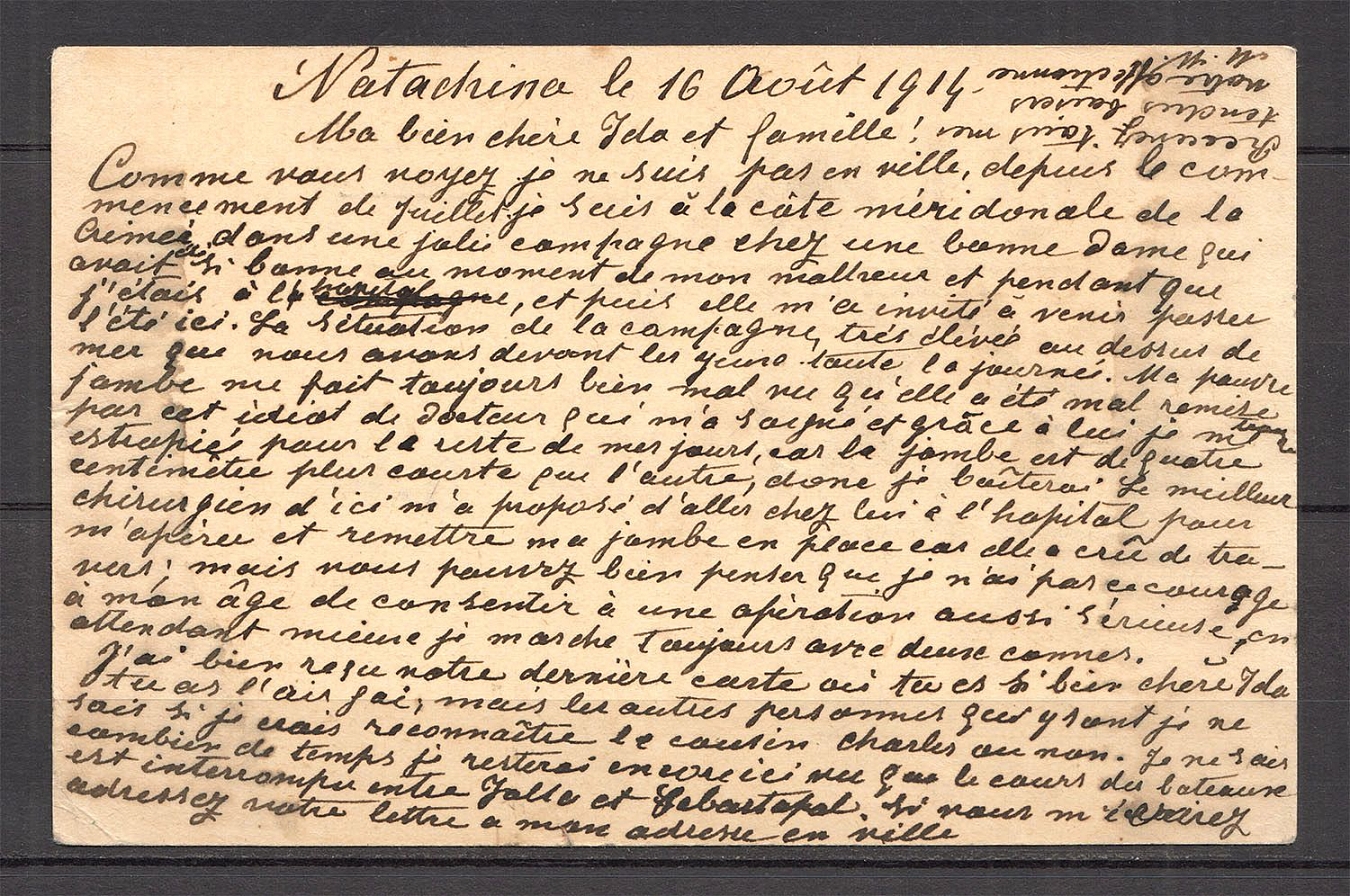 Natachino le 16 Août 1914.
Ma bien chère Ida et famille!
Comme vous voyez je ne suis pas en ville, depuis le com-
mencement de Juillet je suis à la côte méridonale de la
Crimée, dans une jolie campagne chez une bonne Dame qui
avait été si bonne au moment de mon malheur et pendant que
j'étais à l'hopital, et puis elle m'a invité à venir passer
l'été ici. La situation de la campagne, très élévée au dessus de
mer que nous avons devant les yeux toute la journée. Ma pauvre
jambe me fait toujours bien mal vu qu'elle a été mal remise
par cet idiot de docteur qui m'a soigné et grâce à lui je m'
estropiée pour le reste de mes jours, car la jambe est de quatre
centimètre plus courte que l'autre, donc je boîterai. Le meilleur
chirurgien d'ici m'a proposé d'aller chez lui à l'hopital pour
m'opérer et remettre ma jambe en place car elle a crûe de tra-
vers; mais vous pouvez bien penser que je n'ai pas ce courage
à mon âge de consentir à une opération aussi sérieuse, en
attendant mieux je marche toujours avec deux cannes.
J'ai bien reçu votre dernière carte où tu es si bien chère Ida
tu as l'air gai, mais les autres personnes qui y sont je ne
sais si je vais reconnaître le cousin Charles ou non. Je ne sais
combien de temps je resterai encore ici vu que le cours des bateaux
est interrompu entre Jalta et Sebastopol. Si vous m'écrivez
adressez votre lettre a mon adresse en ville
Recevez tous mes
tendres baisers
votre affectionne
M. M.